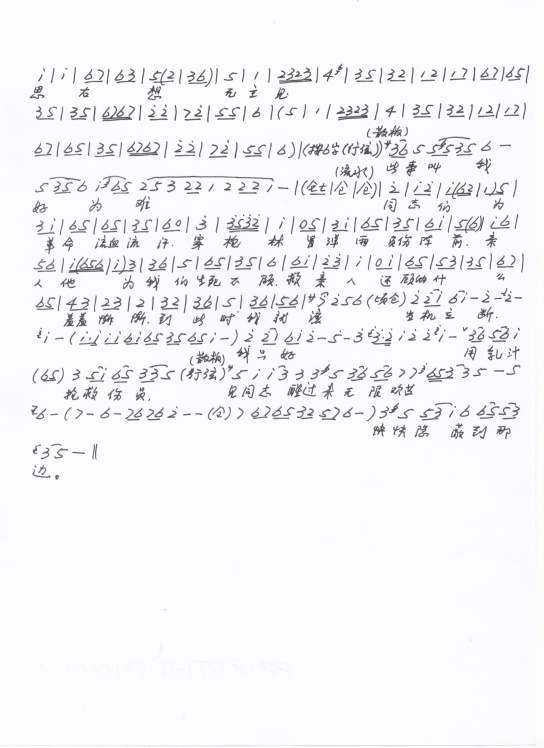 i | i | 67 | 63 | 5(2 | 36) | 5 | 1 | 2323 | 4 | 35 | 32 | 12 | 17 | 67 | 65 |
思 右 想 无 主 见
35 | 35 | 6767 | 22 | 72 | 55 | 6 | (5 | 1 | 2323 | 4 | 35 | 32 | 12 | 17 |
(散板)
67 | 65 | 35 | 6767 | 22 | 72 | 55 | 6) | (行弦)) 36 5 5 5 35 6 —
(流水) 些 事 叫 我
5 35 6 i 65 2 5 3 2 2 1 2 2 2 i — | | 2 | i2 | i(62 | 1)5 |
好 为 难 同 志 们 为
3i | 65 | 65 | 35 | 60 | 3 | 3532 | i | 05 | 3i | 65 | 35 | 6i | 5(6) | i6 |
革 命 流血 流 汗. 穿 枪 林 冒 弹 雨 负伤 阵 前. 亲
56 | i(656 | i)3 | 36 | 5 | 65 | 35 | 6 | 6i | 23 | i | 0i | 65 | 53 | 35 | 67 |
人 他 为 我 们 生死 不 顾. 救 亲 人 还 顾的 什 么
65 | 43 | 23 | 2 | 32 | 36 | 5 | 36 | 56 | 2 5 6 2 2 i 6 i — 2 — 2 —
羞羞 惭 惭. 到 此 时 我 就 该 当 机 立 断.
i — ( i i i i 6 i 6 5 3 5 6 5 i — ) 2 2 i 6 i 2 — 5 — 3 32 i 2 2 i — 36 56 i
(散板) 我 只 好 用 乳 汁
(65) 3 5 i 65 335 (行弦) 5 i i 3 3 3 5 36 56 7 7 653 35 — 5
抢救 伤 员. 见 同志 醒过 来 无 限
6 — ( 7 — 6 — 7 6 7 6 2 — — (仓) 7 6 7 6 5 3 2 5 7 6 — ) 3 5 53 i 6 65 53
快 快 隐 蔽 到 那
35 — ‖
边。